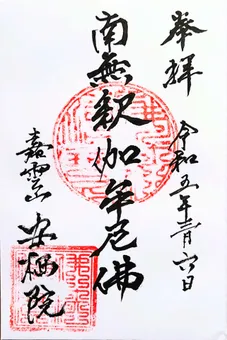 奉拝
令和五年二月六日
南無釈迦牟尼佛
嘉雲山
安栖院